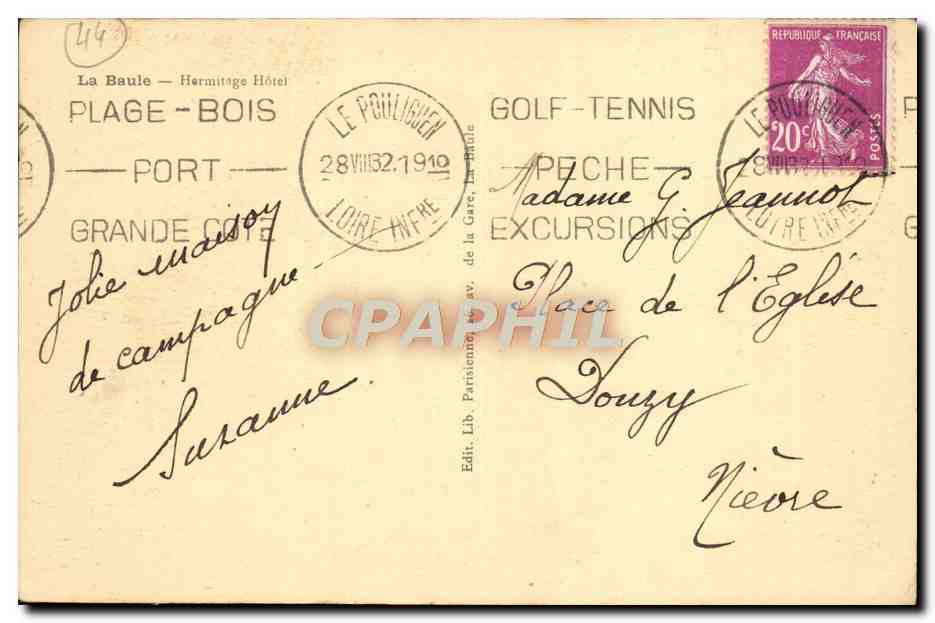 44
La Baule — Hermitage Hôtel
PLAGE-BOIS
PORT
GRANDE COTE
LE POULIGUEN
28 VIII 32. 19 10
LOIRE INFRE
GOLF-TENNIS
PECHE
EXCURSIONS
REPUBLIQUE FRANÇAISE
20c
POSTES
LE POULIGUEN
LOIRE INFRE
Jolie maison
de campagne
Suzanne.
Edit. Lib. Parisienne, av. de la Gare, La Baule
Madame G. Jeannot
Place de l'Eglise
Donzy
Nièvre
CPAPHIL